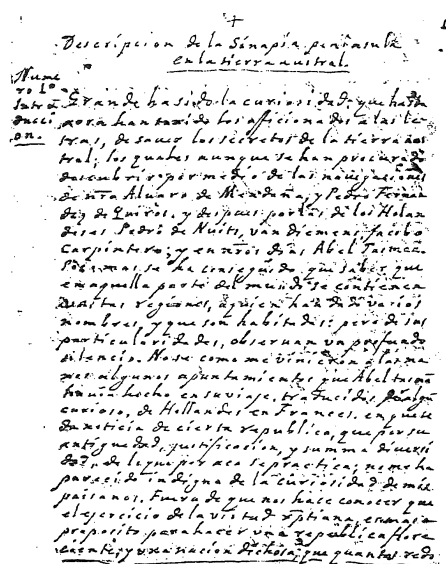 Descripcion de la Sinapia, peninsula
en la tierra austral.
Nume
ro 1º
Introd
uccion.
Grande ha sido la curiosidad, que hasta
aora han tenido los aficionados a las le
tras, de saver los secretos de la tierra aus
tral; los quales aunque se han procurado
descubrir por medio de las navegaciones
de nro Alvaro de Mendaña, y Pedro Fernan
dez de Quiros, y despues por las de los Holan
deses Pedro de Nuits, van Diemens, Jacobo
Carpintero; y en nros dias Abel Tasman.
Poco mas se ha conseguido, que saber que
en aquella parte del mundo se contienen
vastas regiones, a quien han dado varios
nombres, y que son habitadas: pero de sus
particularidades, observan un profundo
silencio. No se como me vinieron a las ma
nos algunos apuntamientos que Abel tasman
havia hecho en su viaje, traducidos, por algun
curioso, de Hollandes en Frances, en que se
da noticia de cierta republica, que por su
antiguedad, justificacion, y summa diversi
dad, de lo que por aca se practica; no me ha
parecido indigna de la curiosidad de mis
paisanos. Fuera de que nos hace conocer que
el ejercicio de la virtud xptiana, es mas a
proposito para hacer una republica flore
ciente, y una nacion dichosa, que quantos redo